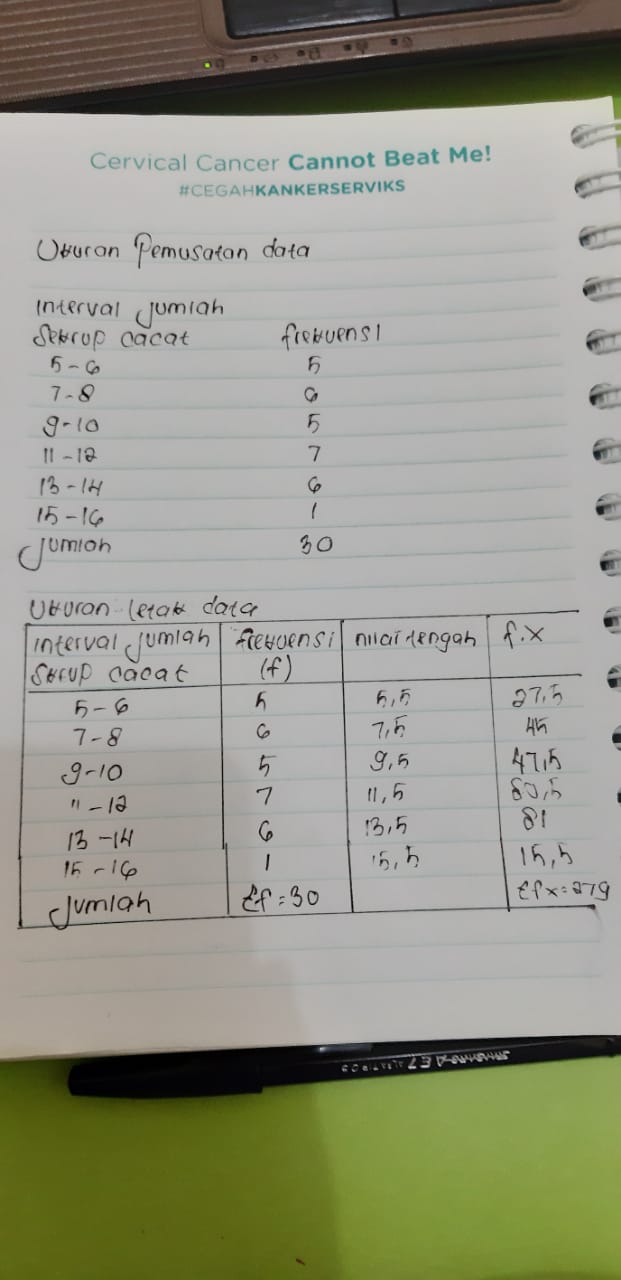 Cervical Cancer Cannot Beat Me!
#CEGAHKANKERSERVIKS
Ukuran Pemusatan data
interval jumlah
Sekrup cacat frekuensi
5-6 5
7-8 6
9-10 5
11-12 7
13-14 6
15-16 1
jumlah 30
Ukuran letak data
interval jumlah frekuensi nilai tengah f.x
Skrup cacat (f)
5-6 5 5,5 27,5
7-8 6 7,5 45
9-10 5 9,5 47,5
11-12 7 11,5 80,5
13-14 6 13,5 81
15-16 1 15,5 15,5
jumlah Σf=30 Σfx=279